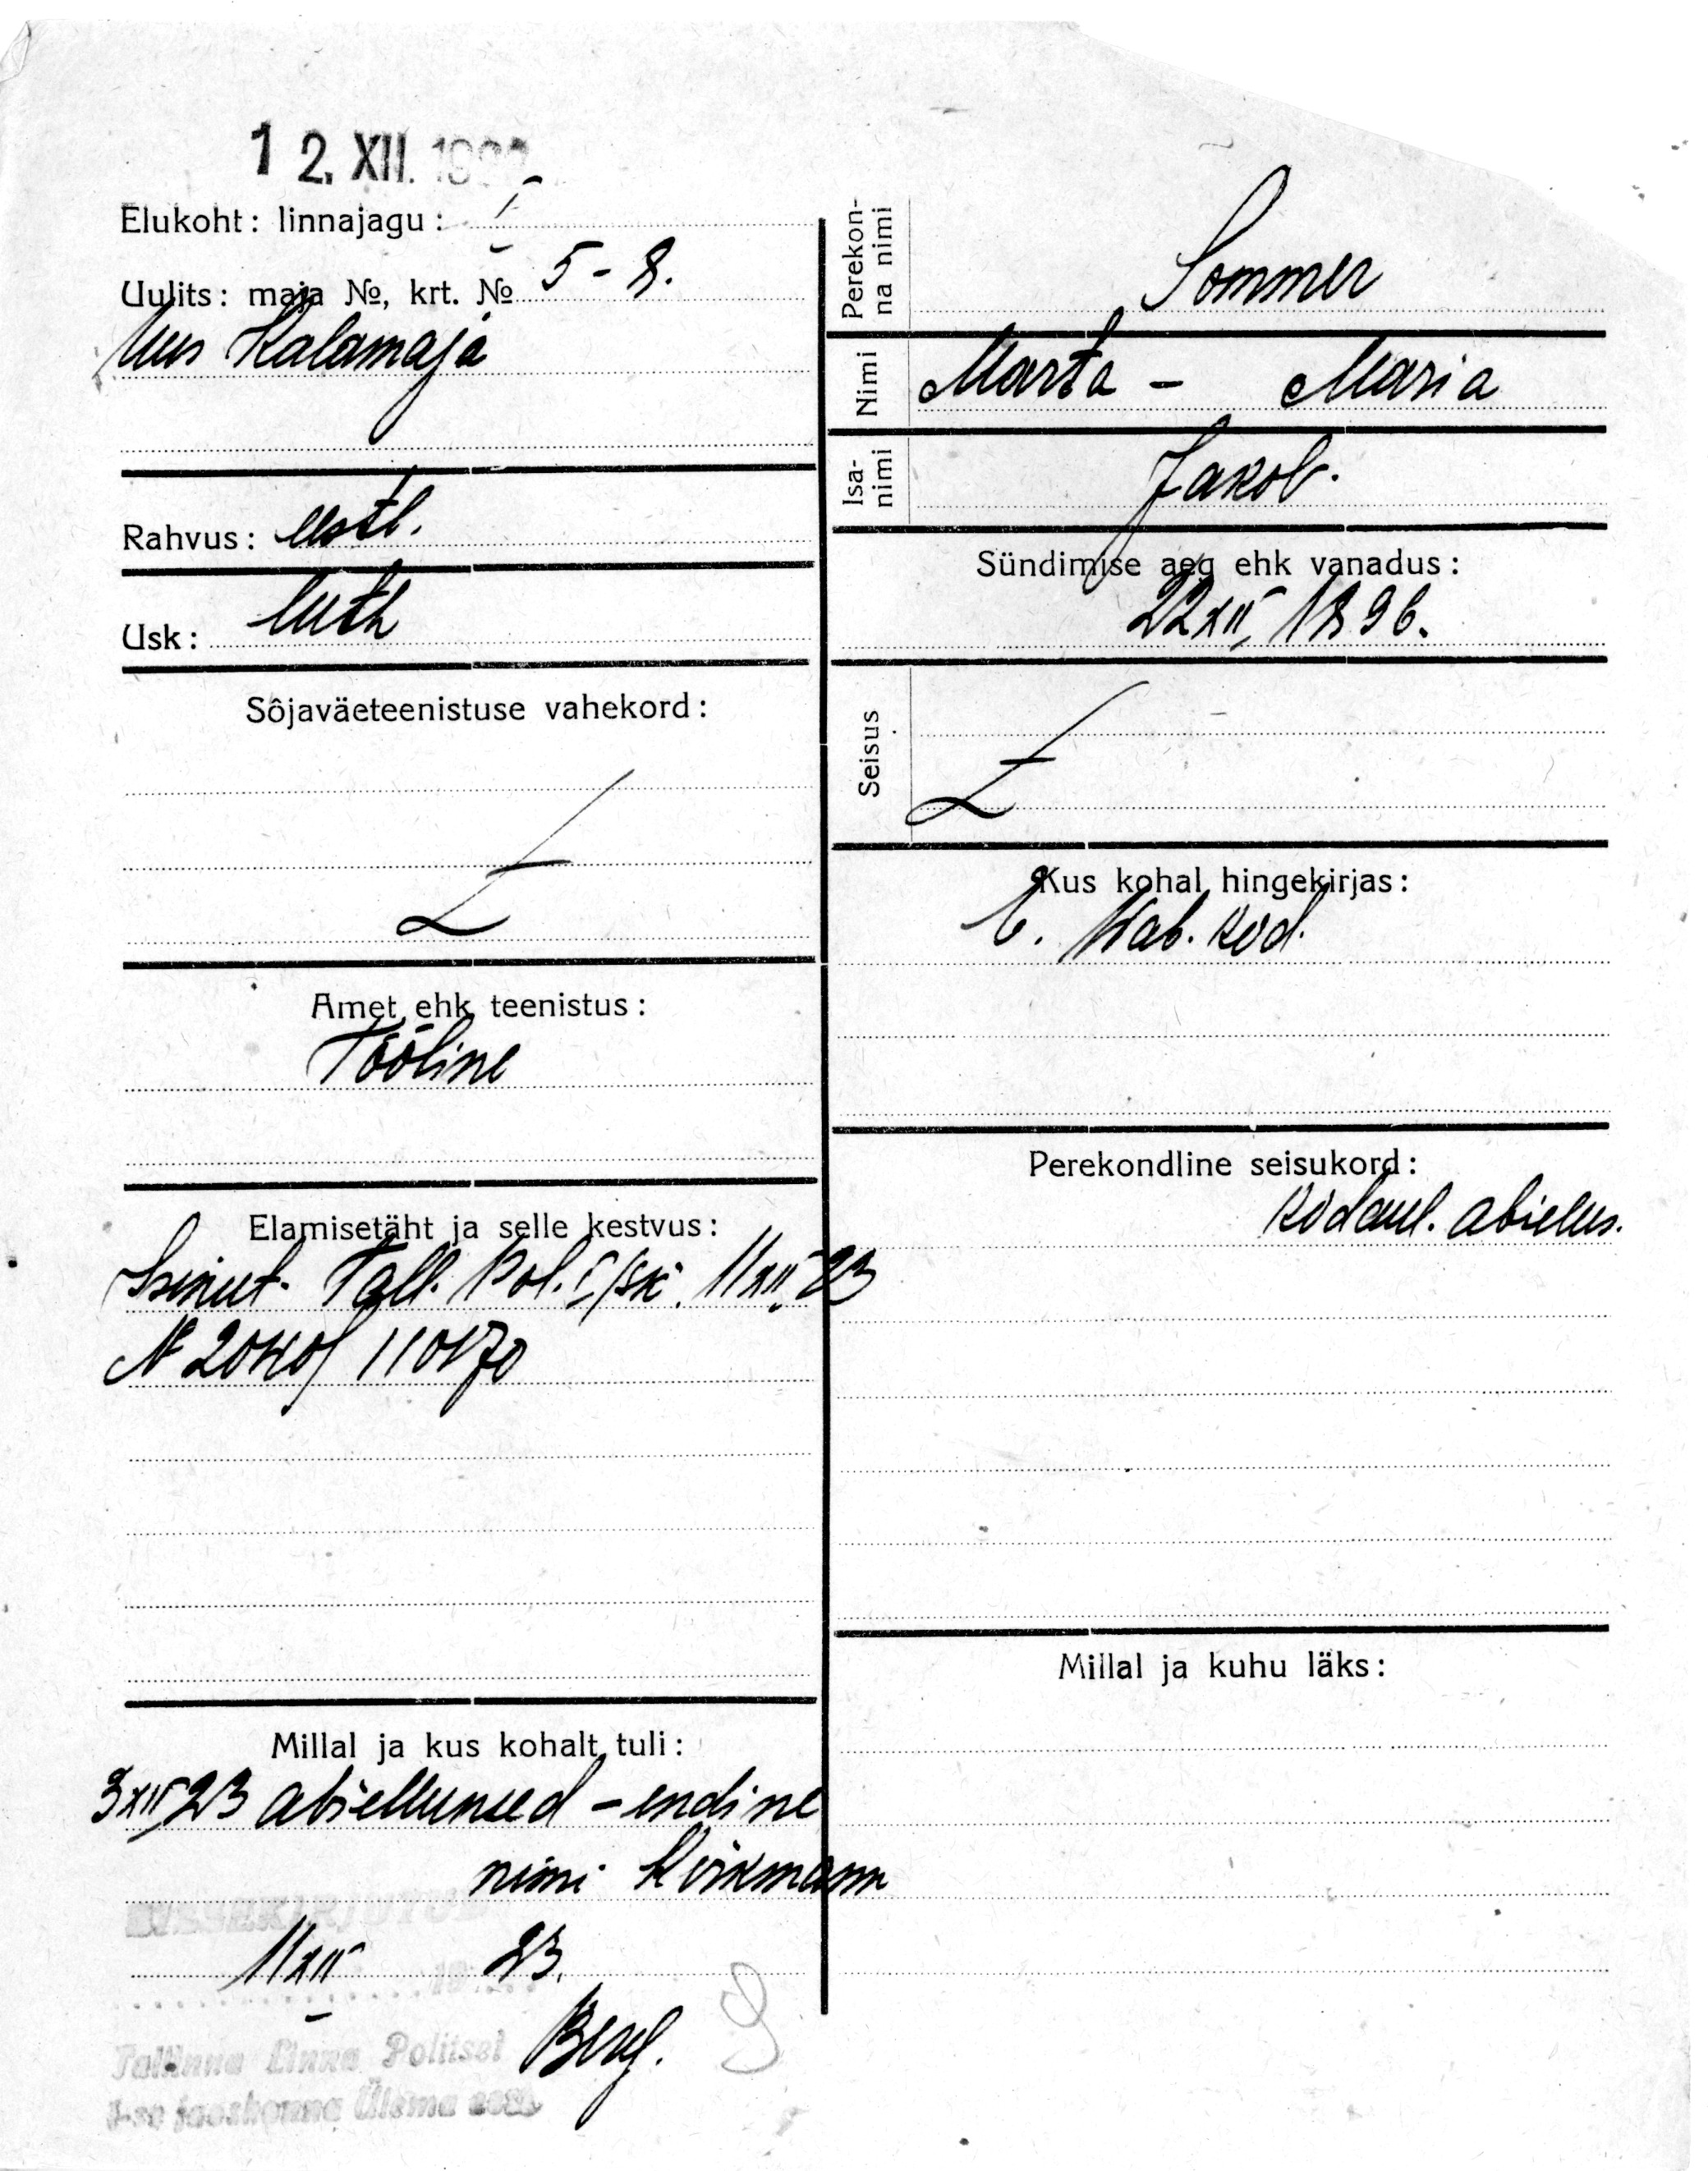 12. XII.
Elukoht: linnajagu: I
Uulits: maja №, krt. № 5-8.
Uus Kalamaja
Rahvus: eestl.
Usk: luth
Sôjaväeteenistuse vahekord:
Amet ehk teenistus:
Tööline
Elamisetäht ja selle kestvus:
Tall. Pol. I jsk. 11 XII 23
№
Millal ja kus kohalt tuli:
3 XII 23 abiellunud - endine
nimi
11 XII 23.
Tallinna Linna Politsei
Berg.
Perekon-
na nimi
Sommer
Nimi
Marta - Maria
Isa-
nimi
Jakob.
Sündimise aeg ehk vanadus:
22 XII 1896.
Seisus
Kus kohal hingekirjas:
E. Wab. kod.
Perekondline seisukord:
kodanl. abielus.
Millal ja kuhu läks: